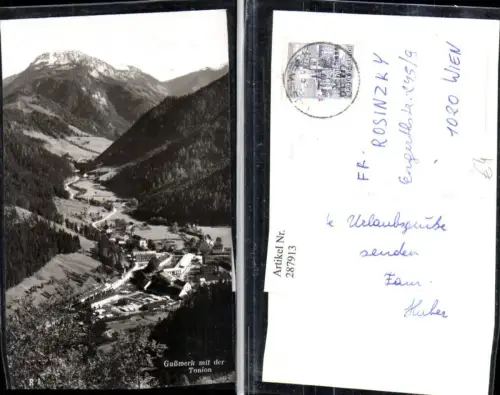 Gußwerk mit der
Tonion
Artikel Nr.
287913
FR.
ROSINZKY
1020 WIEN
Urlaubsgrüße
senden
Fam.
Huber